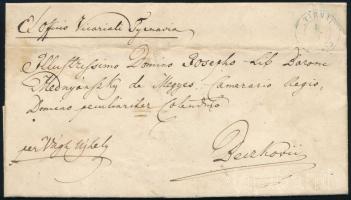 E Officio Vicariali Tyrnavia
Illustrissimo Domino Josepho Lib Baroni
Mednyanszky de Megyes. Camerario Regio,
Domino peculiariter Colendiss
per Vágh Ujhely
Beczkovii